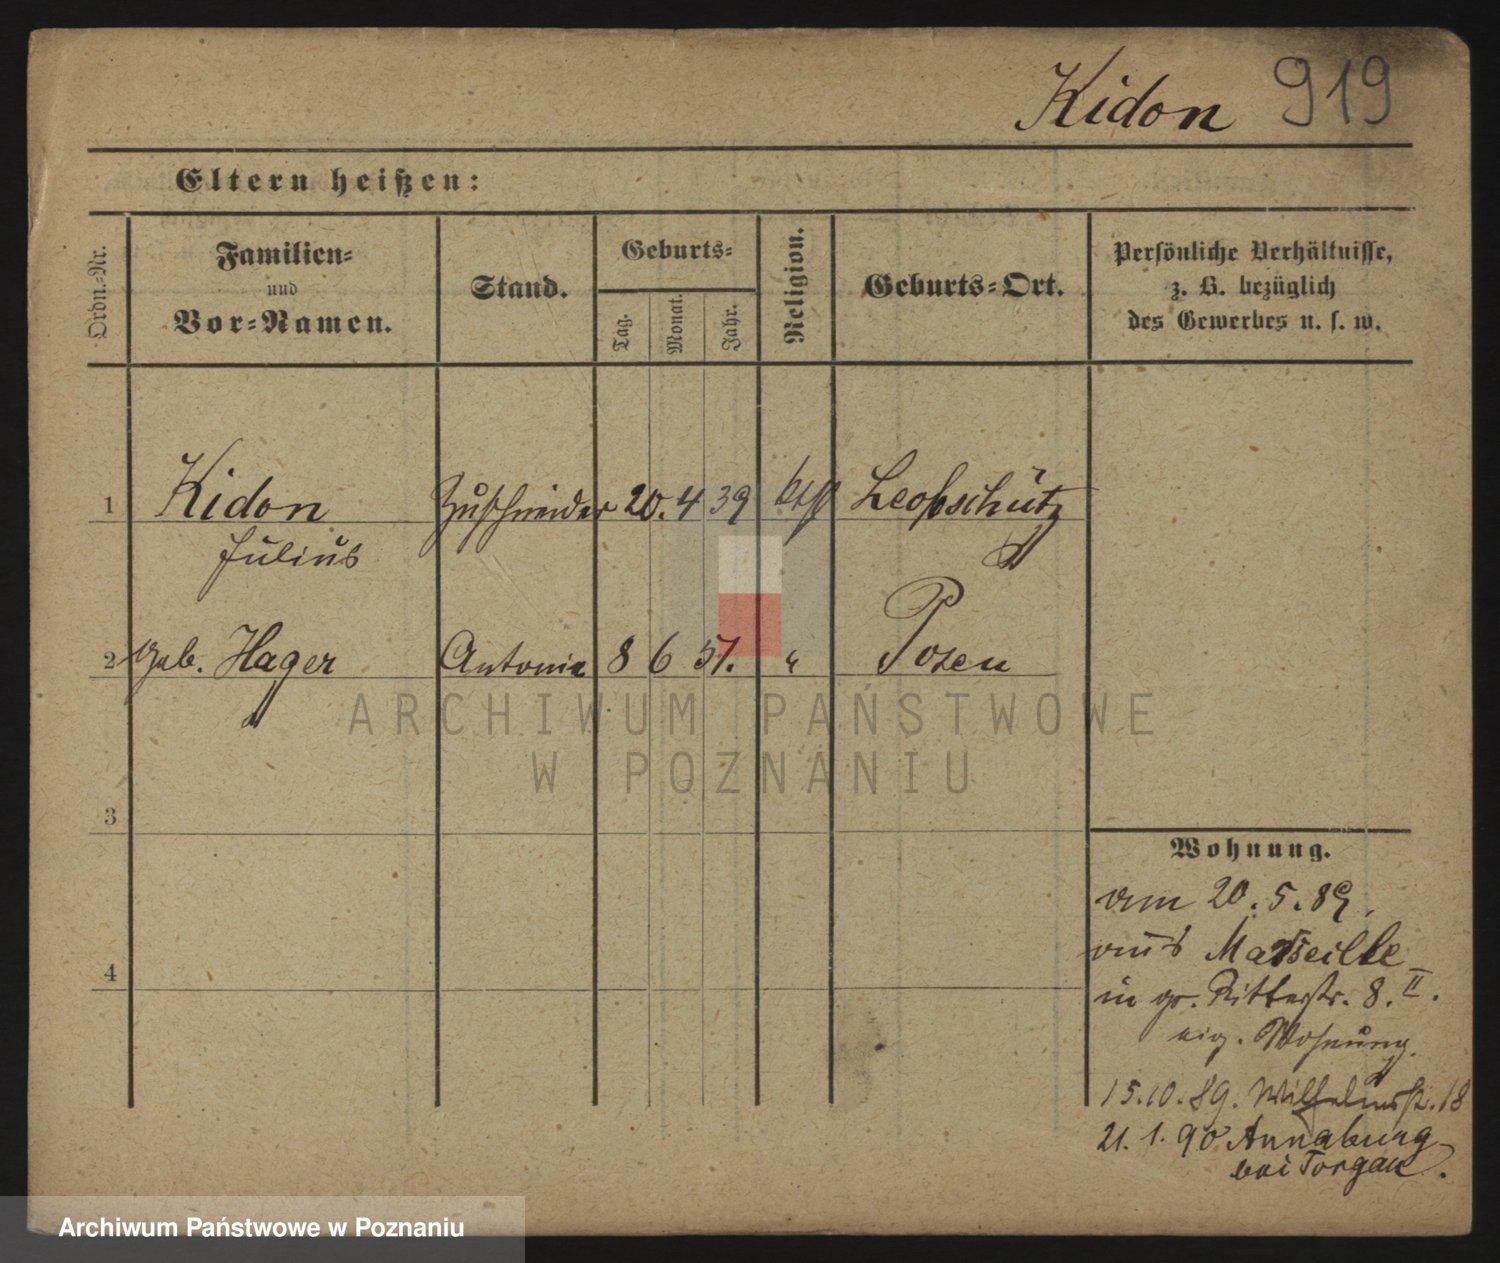 Kidon 919
Eltern heißen:
Ordn.-Nr.
Familien-
und
Vor-Namen.
Stand.
Geburts-
Tag.
Monat.
Jahr.
Religion.
Geburts-Ort.
Persönliche Verhältnisse,
z. B. bezüglich
des Gewerbes u. s. w.
1 Kidon Zuschneider 20. 4 39 Leobschütz
Julius
2 geb. Hager Antonie 8 6 51. " Posen
3
4
Wohnung.
vom 20. 5. 89.
aus Marseille
in gr. Ritterstr. 8. II.
eig. Wohnung.
15.10.89. Wilhelmstr. 18
21. 1. 90 Annaburg
bei Torgau.
ARCHIWUM PAŃSTWOWE
W POZNANIU
Archiwum Państwowe w Poznaniu